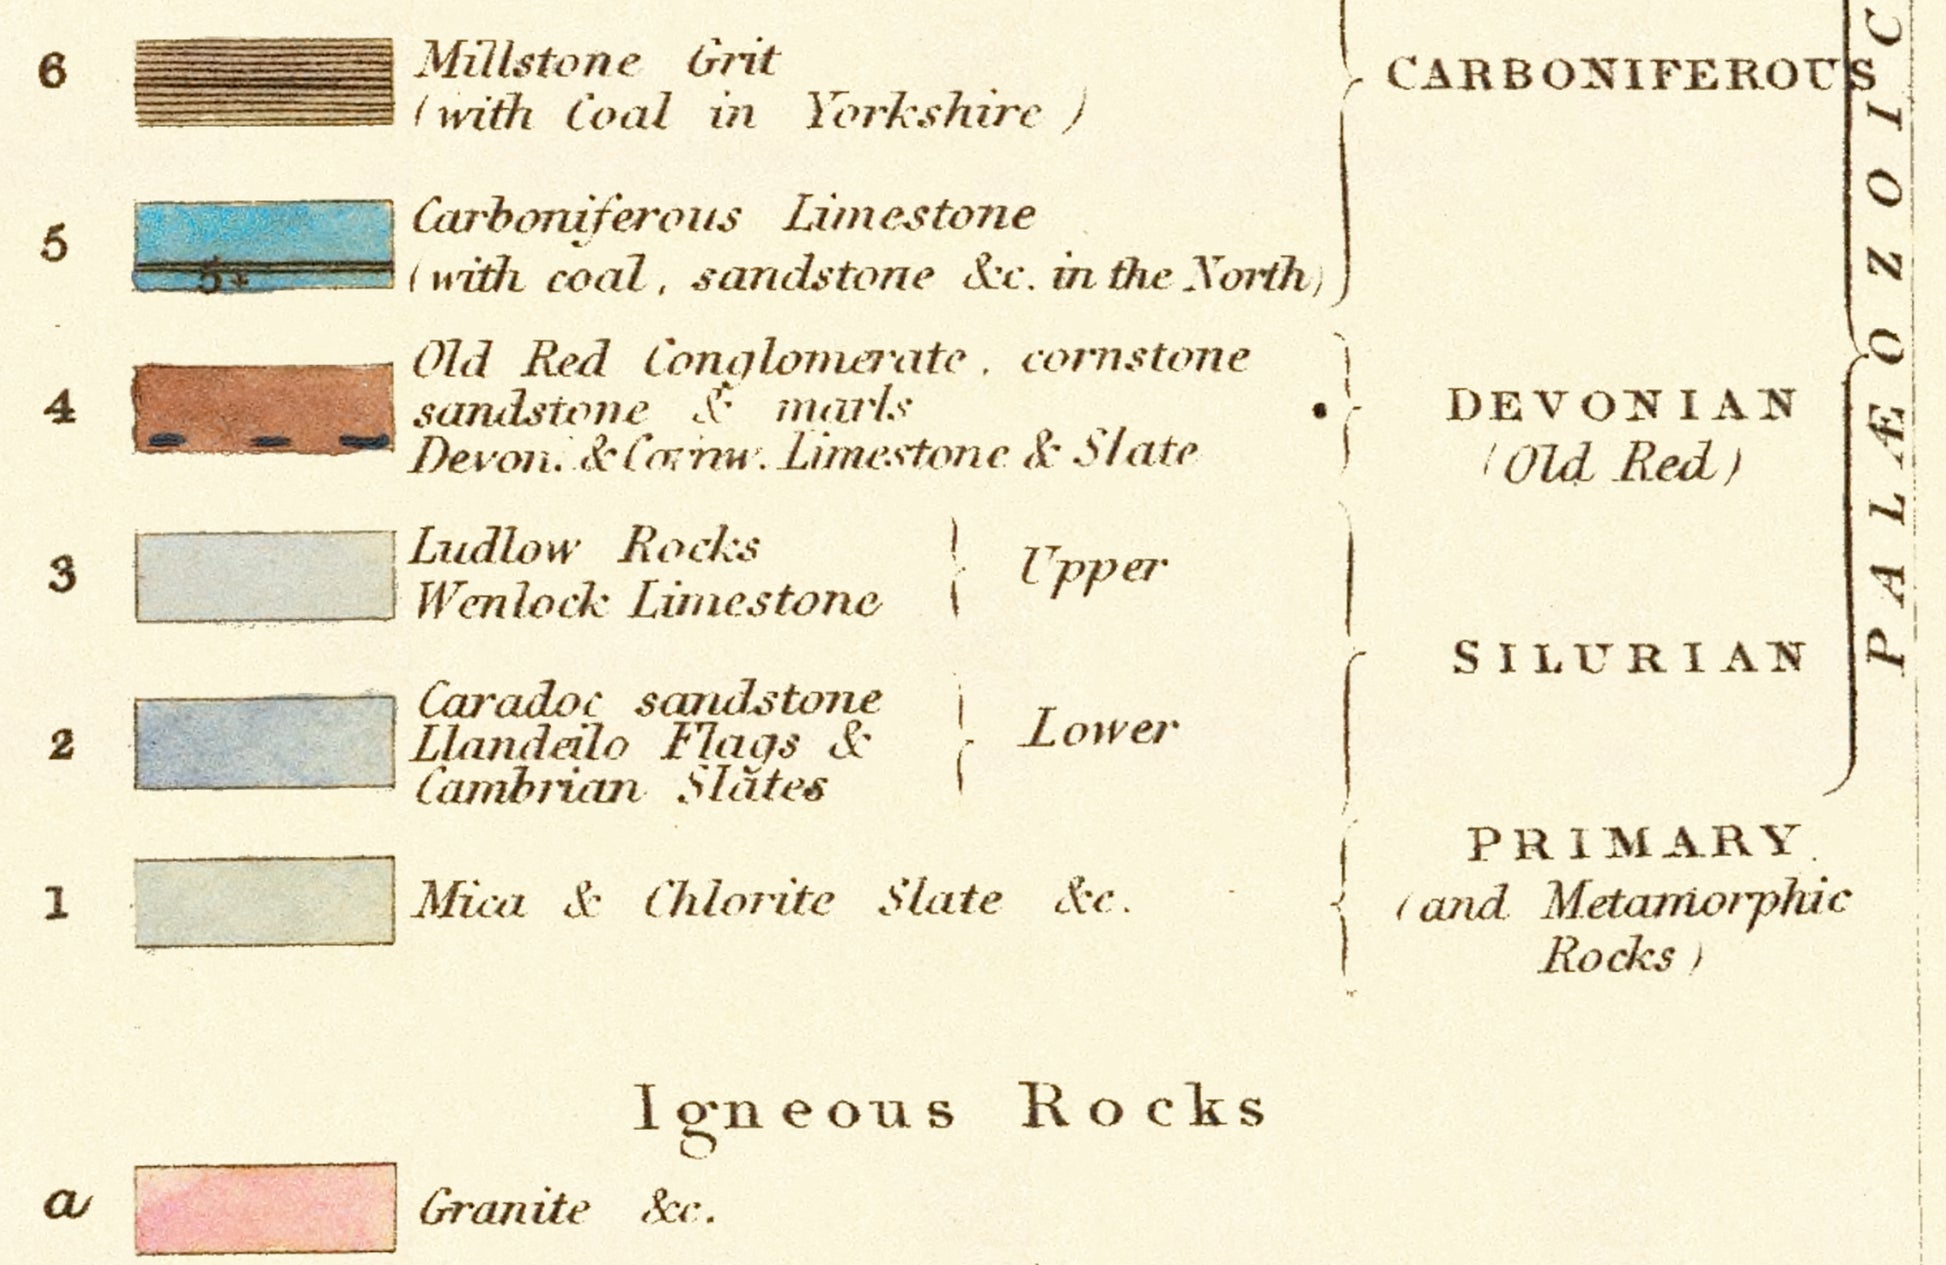 6 Millstone Grit
(with Coal in Yorkshire)
CARBONIFEROUS
5 Carboniferous Limestone
5*
(with coal, sandstone &c. in the North)
4 Old Red Conglomerate, cornstone
sandstone & marls
Devon. & Cornw. Limestone & Slate
DEVONIAN
(Old Red)
3 Ludlow Rocks
Wenlock Limestone
Upper
SILURIAN
2 Caradoc sandstone
Llandeilo Flags &
Cambrian Slates
Lower
PALÆOZOIC
1 Mica & Chlorite Slate &c.
PRIMARY.
(and Metamorphic
Rocks)
Igneous Rocks
a Granite &c.